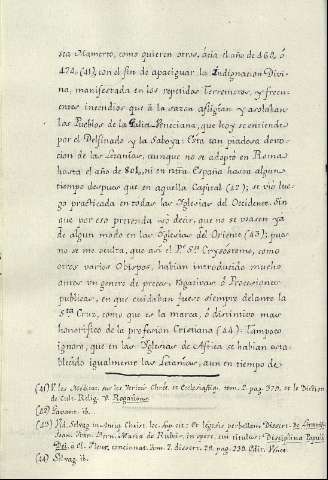 sea Mamerto, como quieren otros, ácia el año de 468, ó
470. (41), con el fin de apaciguar la Indignacion Divi-
na, manifestada en los repetidos Terremotos, y freqü-
entes incendios que á la sazon afligian y asolaban
los Pueblos de la Galia Veneciana, que hoy se entiende
por el Delfinado y la Saboya: Esta tan piadosa devo-
cion de las Letanías, aunque no se adoptó en Roma
hasta el año de 801, ni en ntra España hasta algun
tiempo despues que en aquella Capital (42); se vió lue-
go practicada en todas las Iglesias del Occidente. Sin
que por eso pretenda yó decir, que no se usasen ya
de algun modo en las Iglesias del Oriente (43); pues
no se me oculta, que asi el Pe. Sn. Crysóstomo, como
otros varios Obispos, habían introducido mucho
antes un genero de preces, Rogativas ó Procesiones
publicas, en que cuidaban fuese siempre delante la
Sta. Cruz, como que es la marca, ó distintivo mas
honorifico de la profesion Cristiana (44): Tampoco
ignoro, que en las Iglesias de Africa se habían esta-
blecido igualmente las Letanías, aun en tiempo de
(41) V. les Notices sur les Periòd. Chret. et Ecclesiastiq. tom. 2. pag. 379. et le Diction.
de Cult. Relig. V. Rogations.
(42) Lavant ib.
(43) Vid. Selvag. in Antiq. Christ. loc. sup. cit. et legesis perbellam Dissert. de Litaniis
Joan. Fran. Bern. Maria de Rubeis, in opere, cui titulus: Disciplina Populi
Dei, à Cl. Fleur. concinnat. tom. 2. dissert. 29. pag. 239. Edit. Venet.
(44) Selvag. ib.